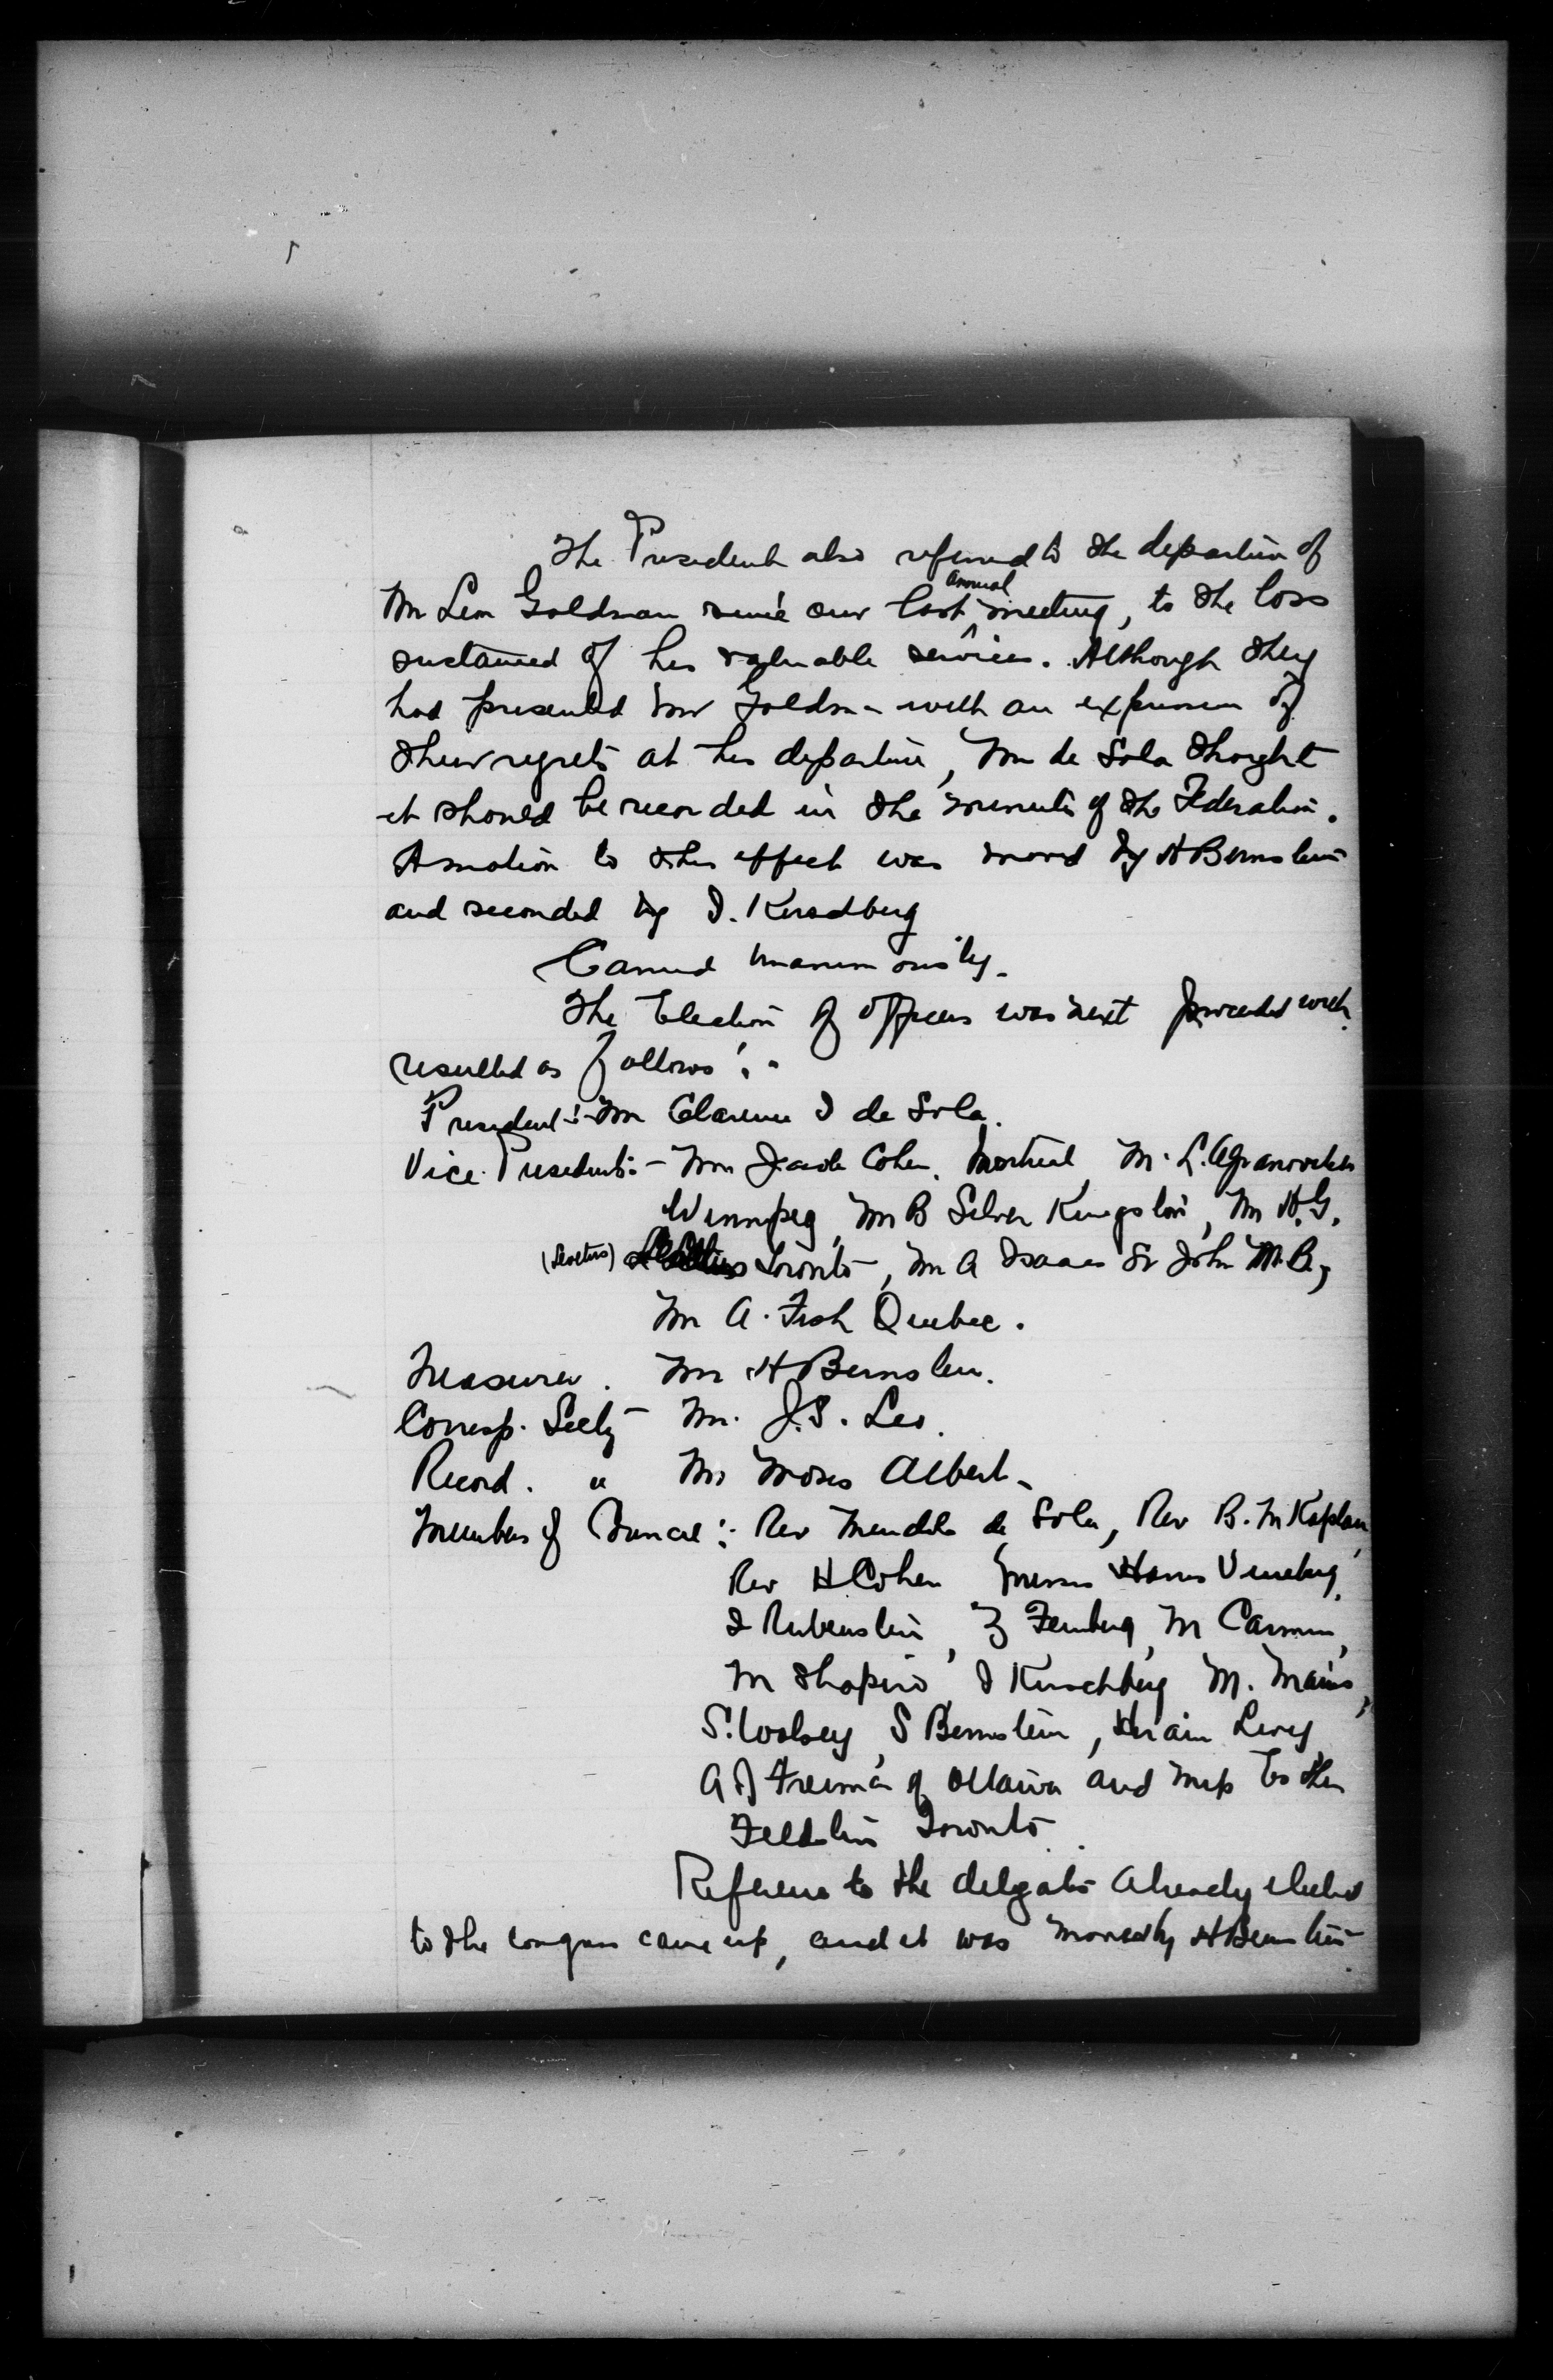 The President also referred to the departure of
Mr Leon Goldman since our last annual meeting, to the loss
sustained of his valuable services. Although they
had presented Mr Goldman with an expression of
their regrets at his departure, Mr de Sola thought
it should be recorded in the minutes of the Federation.
A motion to this effect was moved by H Bernstein
and seconded by I. Kirschberg
Carried unanimously.
The Election of Officers was next proceeded with
resulted as follows:-
President:- Mr Clarence I de Sola.
Vice Presidents:- Mr Jacob Cohen, Montreal, Mr L. Agranovitch
Winnipeg, Mr B Silver Kingston, Mr H.G.
(Levetus) Toronto, Mr A Isaacs St John N.B.,
Mr A. Fish Quebec.
Treasurer. Mr H Bernstein.
Corresp. Secty - Mr. J.S. Leo.
Record. " Mr Moses Albert.
Members of Council:- Rev Meudola de Sola, Rev B. M Kaplan,
Rev H Cohen Messrs Harris Vineberg,
I Rubenstein, Z Feinberg, M Carmin,
M Shapiro, I Kirschberg M.
S. Woolsey, S Bernstein, Hiram Levy
A J Freiman of Ottawa and Miss Esther
Feldstein Toronto.
Reference to the delegates already elected
to the congress came up, and it was moved by H Bernstein